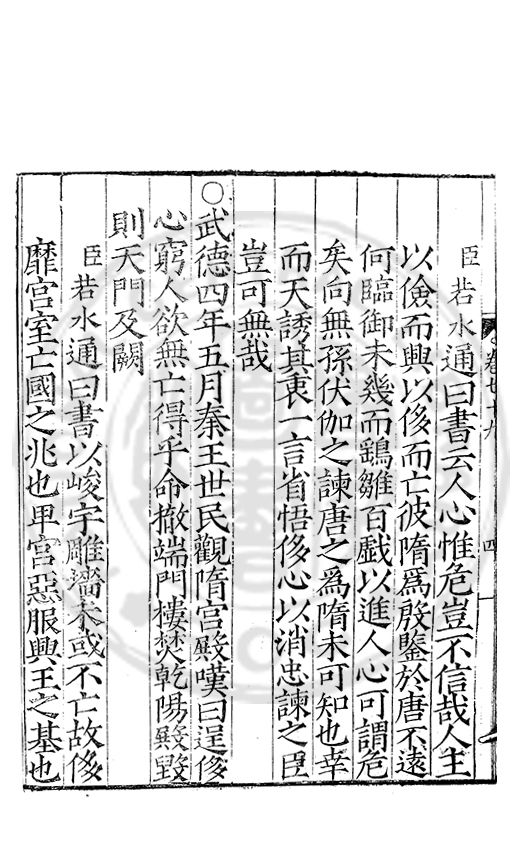 臣若水通曰書云人心惟危豈不信哉人主
以儉而興以侈而亡彼隋為殷鑒於唐不遠
何臨御未幾而鷂雛百戲以進人心可謂危
矣向無孫伏伽之諫唐之為隋未可知也幸
而天誘其衷一言省悟侈心以消忠諫之臣
豈可無哉
○武德四年五月秦王世民觀隋宮殿嘆曰逞侈
心窮人欲無亡得乎命撤端門樓焚乾陽殿毀
則天門及闕
臣若水通曰書以峻宇雕牆未或不亡故侈
靡宮室亡國之兆也卑宮惡服興王之基也
四